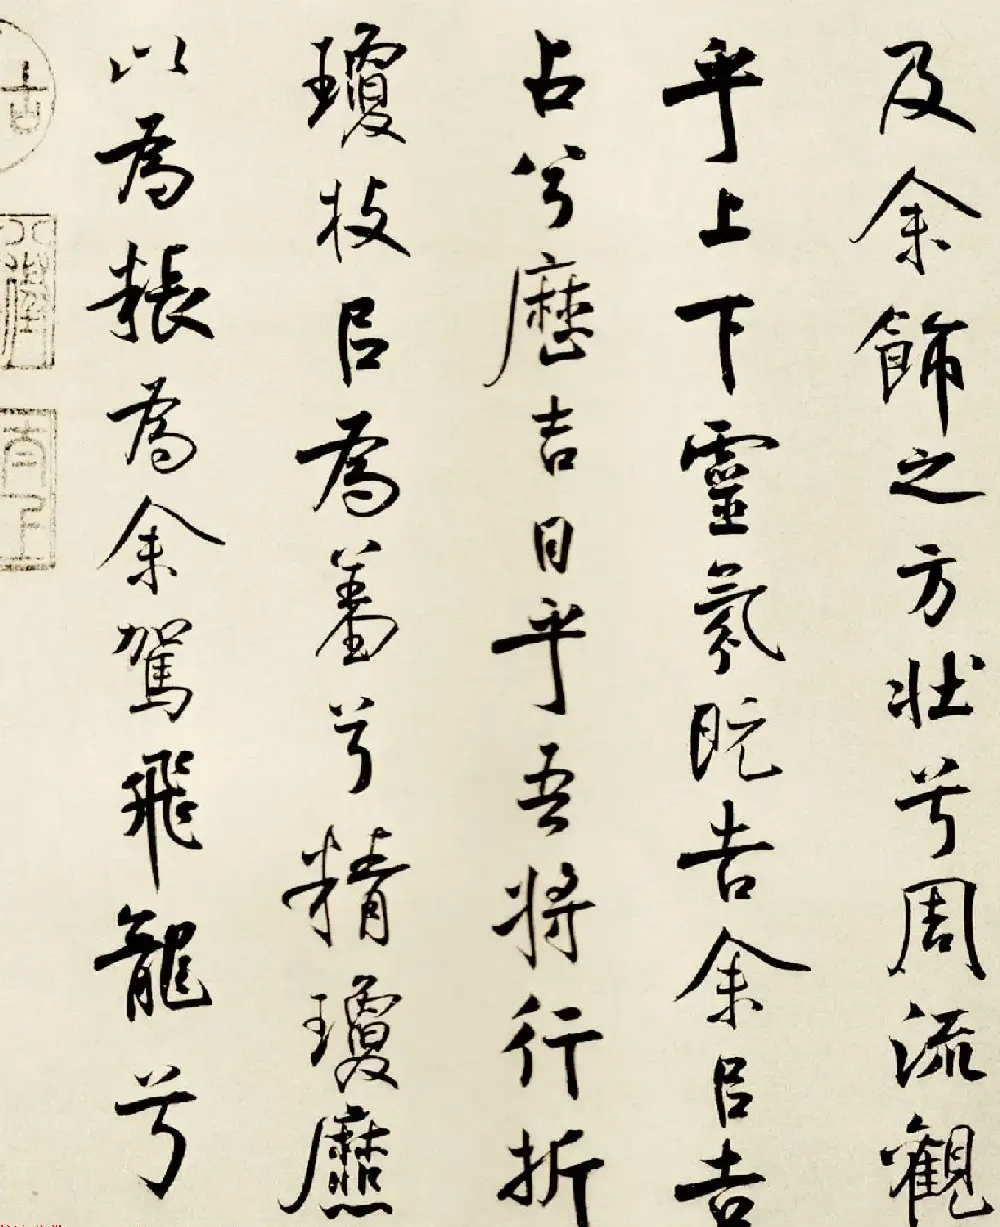 及余飾之方壯兮周流觀
乎上下靈氛既告余㠯吉
占兮歷吉日乎吾將行折
瓊枝㠯為羞兮精瓊爢
以為粻為余駕飛龍兮